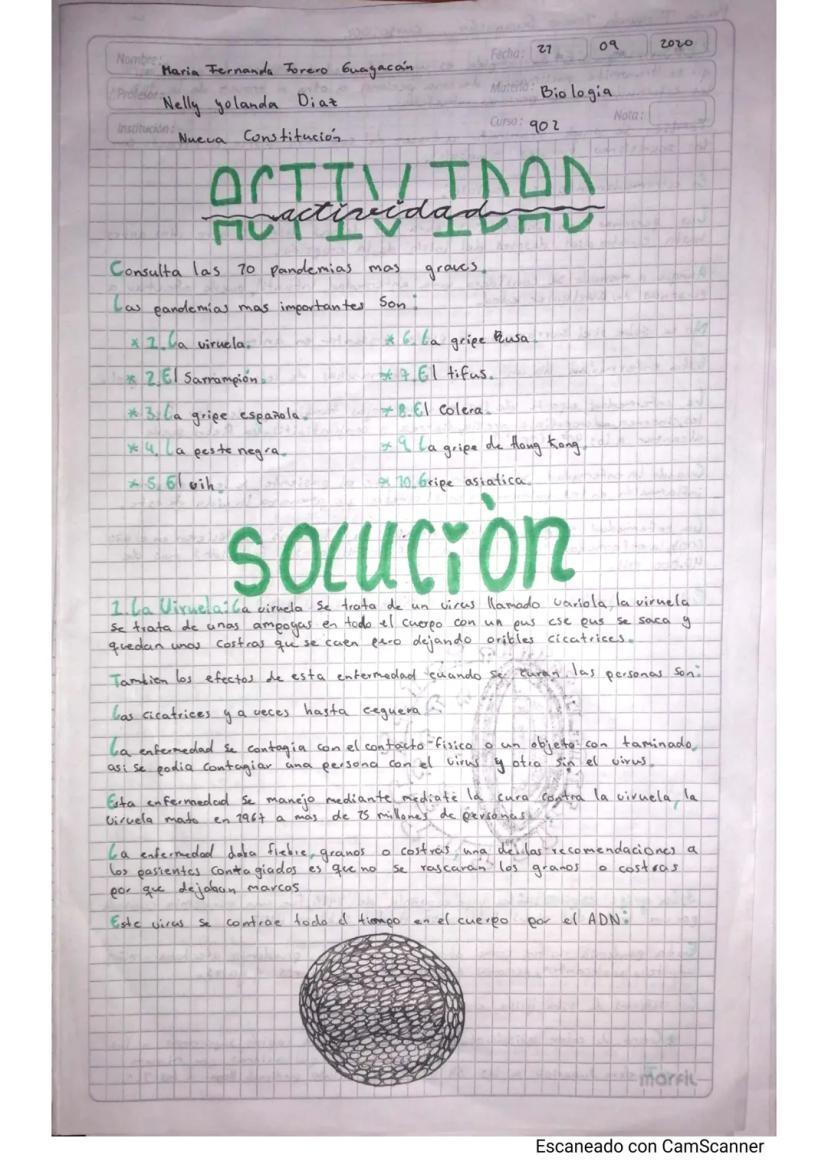 Nombre: Maria Fernanda Forero Guayacán Fecha: 27 09 2020
Profesor: Nelly yolanda Diaz Materia: Biología
Institución: Nueva Constitución Curso: 902 Nota:
ACTIVIDAD
actividad
Consulta las 10 pandemias mas graves.
Las pandemias mas importantes Son:
* 1. La viruela.
* 2. El Sarrampión.
* 3. La gripe española.
* 4. La peste negra.
* 5. El vih.
* 6. La gripe Rusa.
* 7. El tifus.
* 8. El Colera.
* 9. La gripe de Hong Kong.
* 10. Gripe asiatica.
SOLUCIÒN
1. La Viruela: La viruela Se trata de un virus llamado variola, la viruela
se trata de unas ampogas en todo el cuerpo con un pus ese pus se saca y
quedan unas costras que se caen pero dejando oribles cicatrices.
Tambien los efectos de esta enfermedad cuando se curan las personas son:
Las cicatrices y a veces hasta ceguera.
La enfermedad se contagia con el contacto fisico o un objeto con taminado,
asi se podia contagiar una persona con el virus y otra sin el virus.
Esta enfermedad se manejo mediante mediate la cura contra la viruela, la
viruela mato en 1967 a mas de 15 millones de personas.
La enfermedad daba fiebre, granos o costras, una de las recomendaciones a
los pasientes contagiados es que no se rascaran los granos o costras
por que dejaban marcos
Este virus se contrae todo el tiempo en el cuerpo por el ADN:
marfil
Escaneado con CamScanner